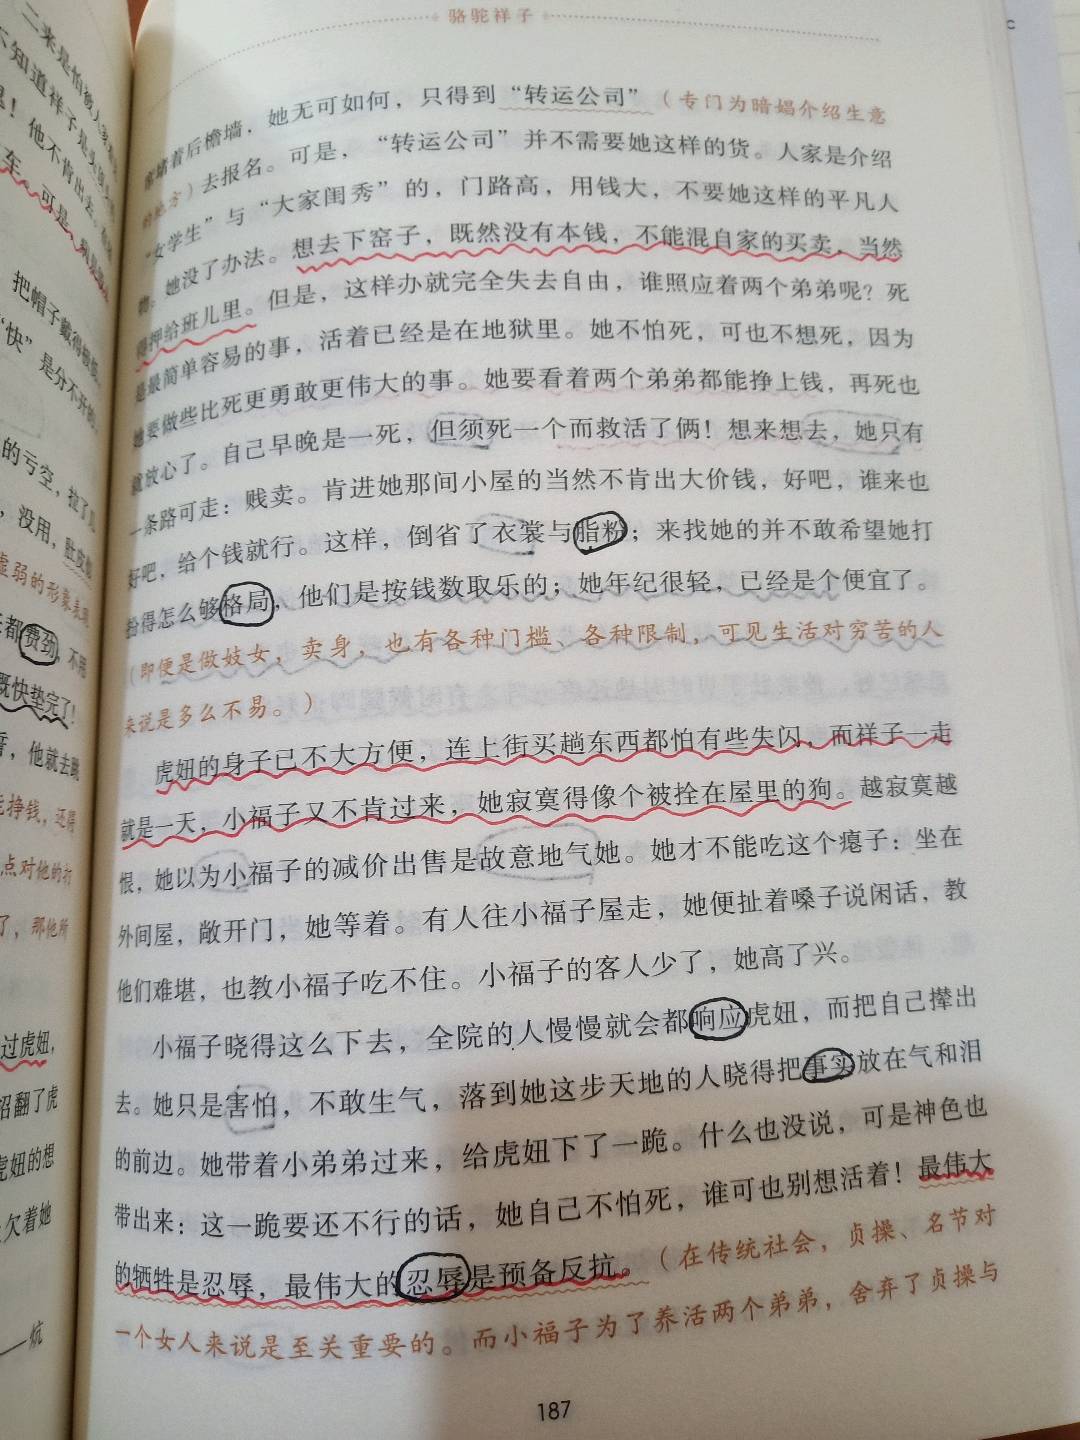 骆驼祥子
二来是怕被人家
不知道祥子是头
他不肯出去
车，可是，
把帽子戴得
“快”是分不开的
的亏空，拉了几
，没用，肚皮
虚弱的形象表现
都费劲，不用
既快垫完了！
，他就去跳
挣钱，还得
点对他的打
了，那他所
过虎妞，
招翻了虎
虎妞的想
欠着她
——炕
堵着后檐墙，她无可如何，只得到“转运公司”（专门为暗娼介绍生意
的地方）去报名。可是，“转运公司”并不需要她这样的货。人家是介绍
“女学生”与“大家闺秀”的，门路高，用钱大，不要她这样的平凡人
物。她没了办法。想去下窑子，既然没有本钱，不能混自家的买卖，当然
得押给班儿里。但是，这样办就完全失去自由，谁照应着两个弟弟呢？死
是最简单容易的事，活着已经是在地狱里。她不怕死，可也不想死，因为
她要做些比死更勇敢更伟大的事。她要看着两个弟弟都能挣上钱，再死也
就放心了。自己早晚是一死，但须死一个而救活了俩！想来想去，她只有
一条路可走：贱卖。肯进她那间小屋的当然不肯出大价钱，好吧，谁来也
好吧，给个钱就行。这样，倒省了衣裳与脂粉；来找她的并不敢希望她打
扮得怎么够格局，他们是按钱数取乐的；她年纪很轻，已经是个便宜了。
（即便是做妓女，卖身，也有各种门槛、各种限制，可见生活对穷苦的人
来说是多么不易。）
虎妞的身子已不大方便，连上街买趟东西都怕有些失闪，而祥子一走
就是一天，小福子又不肯过来，她寂寞得像个被拴在屋里的狗。越寂寞越
恨，她以为小福子的减价出售是故意地气她。她才不能吃这个瘪子：坐在
外间屋，敞开门，她等着。有人往小福子屋走，她便扯着嗓子说闲话，教
他们难堪，也教小福子吃不住。小福子的客人少了，她高了兴。
小福子晓得这么下去，全院的人慢慢就会都响应虎妞，而把自己撵出
去。她只是害怕，不敢生气，落到她这步天地的人晓得把事实放在气和泪
的前边。她带着小弟弟过来，给虎妞下了一跪。什么也没说，可是神色也
带出来：这一跪要还不行的话，她自己不怕死，谁可也别想活着！最伟大
的牺牲是忍辱，最伟大的忍辱是预备反抗。（在传统社会，贞操、名节对
一个女人来说是至关重要的。而小福子为了养活两个弟弟，舍弃了贞操与
187